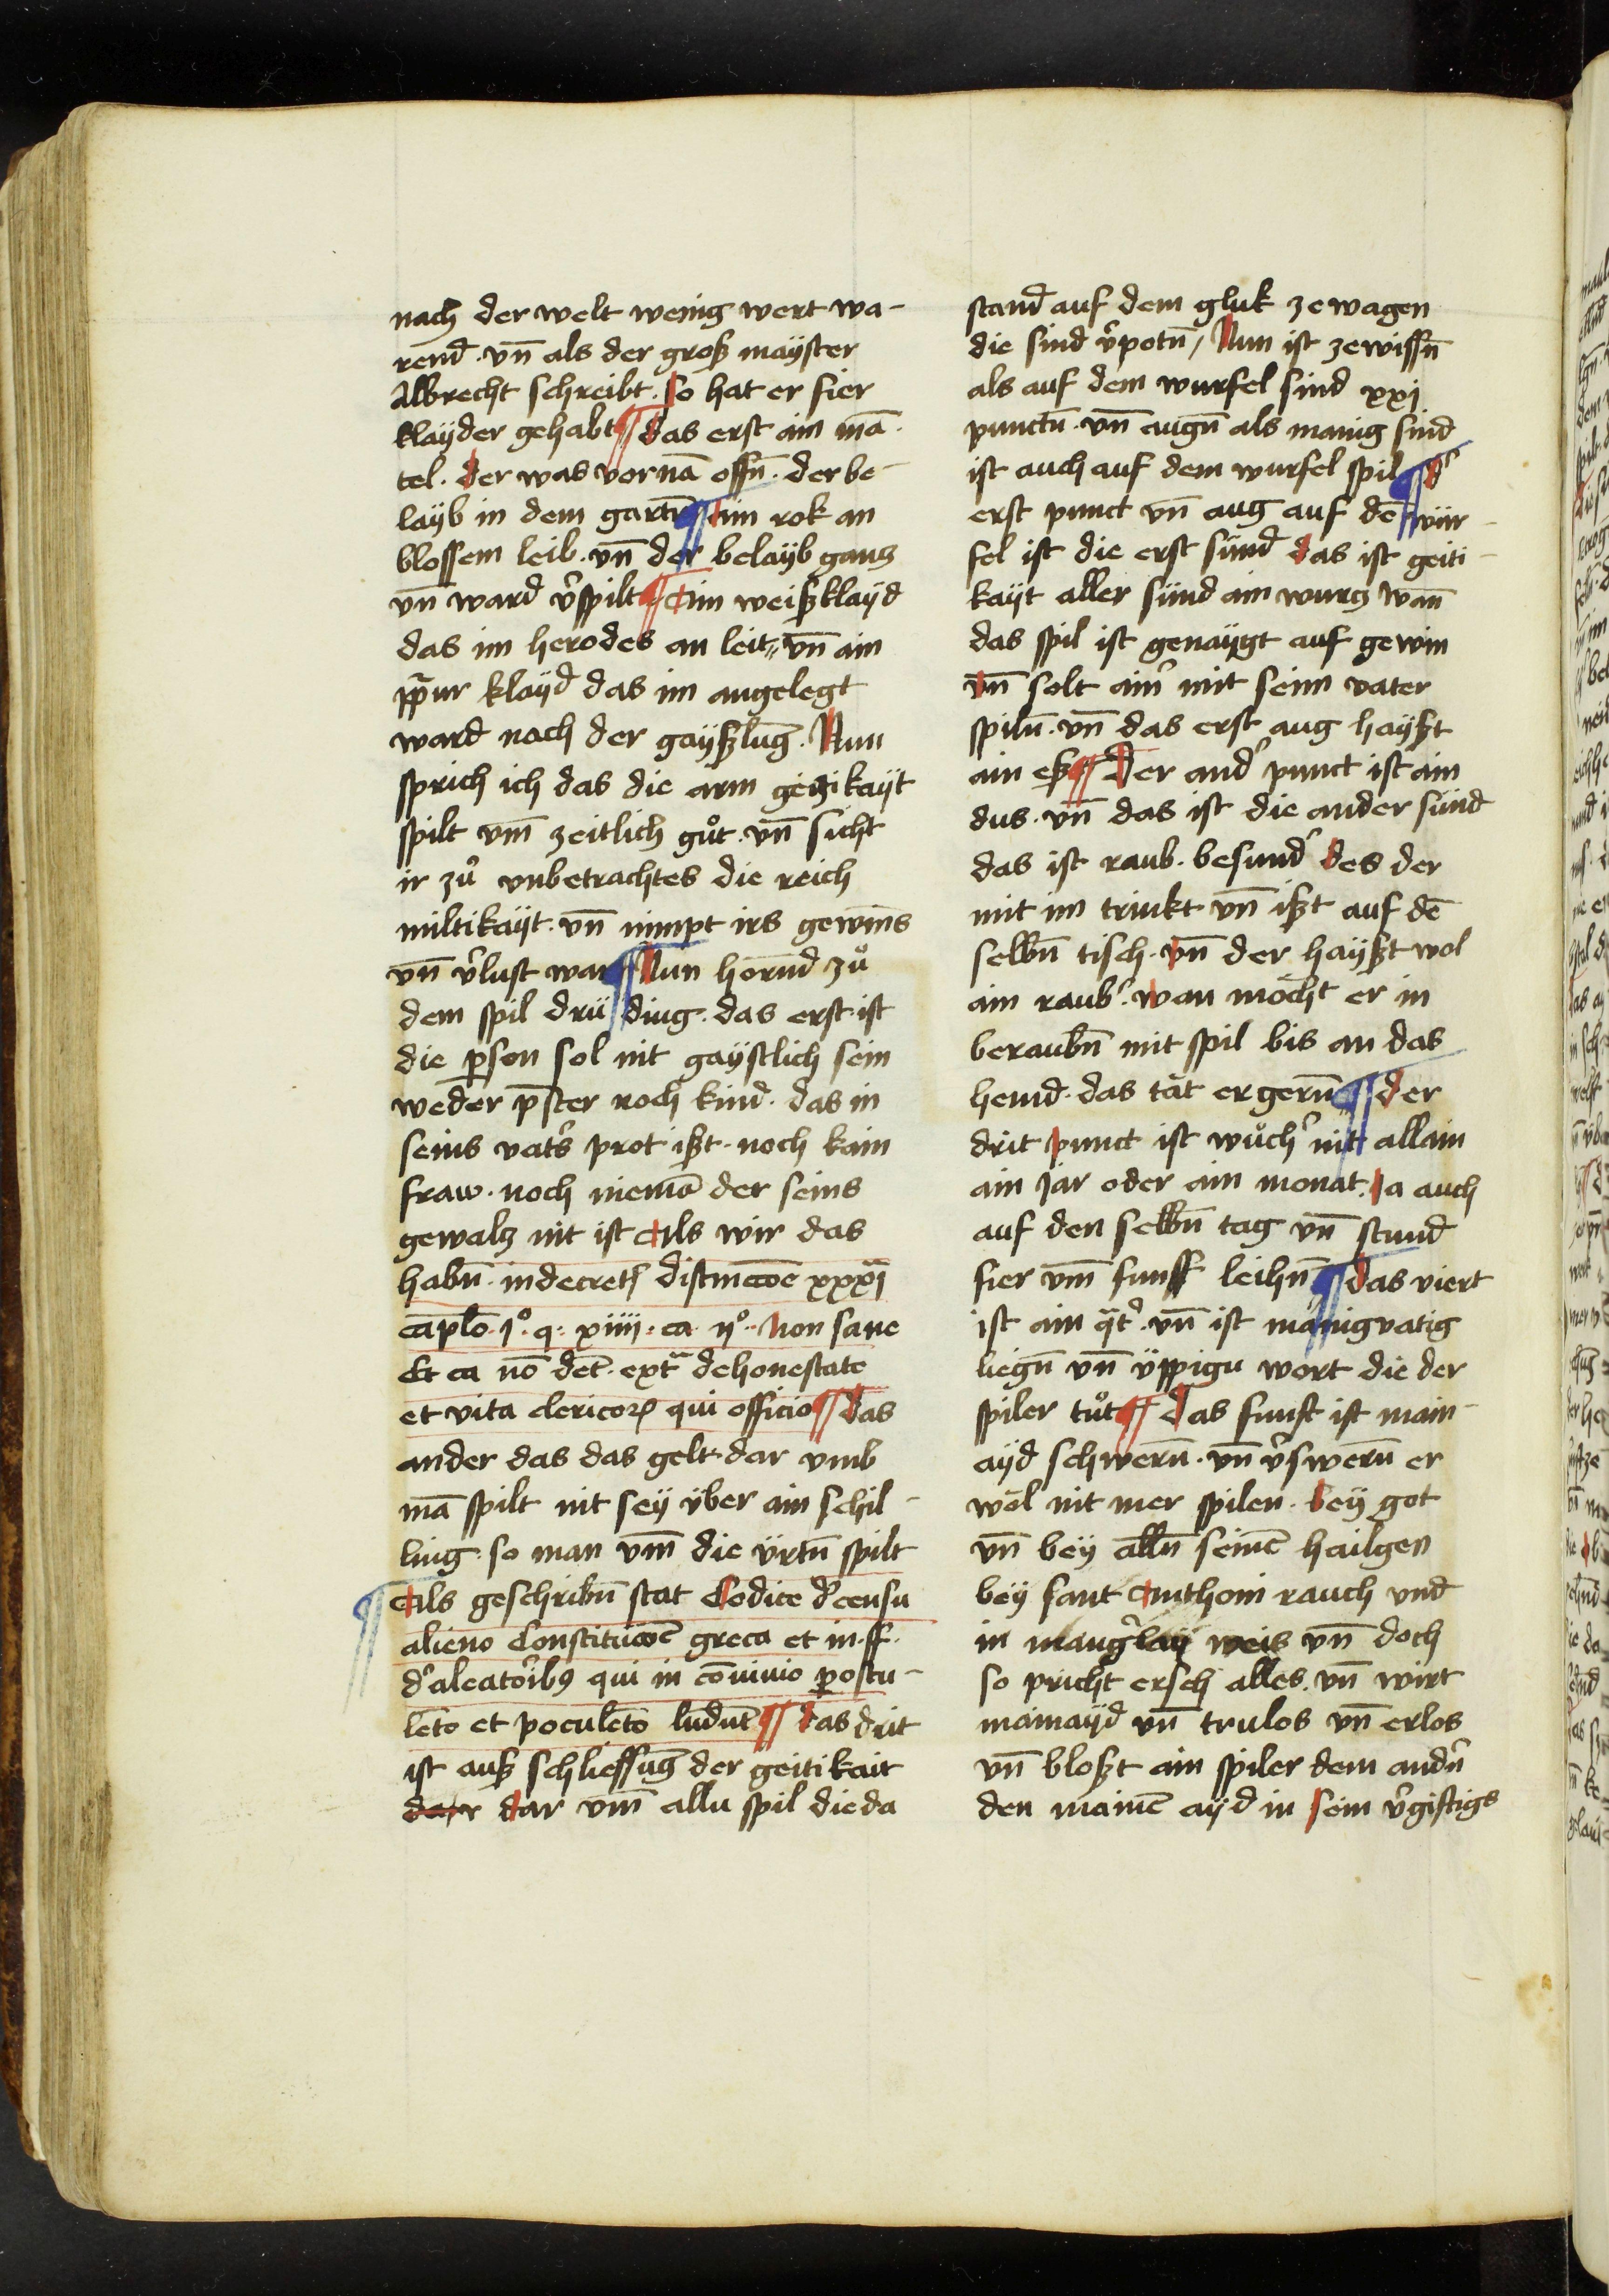 nach der welt wenig wert wa-
rend. vn̄ als der groß mayster
Albrecht schreibt. so hat er fier
klayder gehabt ¶ das erst ain mā-
tel. der was vornā offn̄. der be-
layb in dem gartn̄ ¶ Ain rok an
blossem leib. vn̄ der belayb gantz
vn̄ ward v̉spilt ¶ Ain weiß klayd
das im herodes an leit vn̄ ain
ppᷓur klayd das im angelegt
ward nach der gayßlūg. Nun
sprich ich das die arm geitzikayt
spilt vm̄ zeitlich gůt. vn̄ sicht
ir zů vnbetrachtes die reich
miltikayt. vn̄ nimpt irs gewin̄s
vn̄ v̉lust war ¶ Nun hörnd zů
dem spil drü ding. das erst ist
die ꝑson sol nit gaystlich sein
weder pͥster noch kind. das in
seins vat̉s prot ißt. noch kain
fraw. noch niemā der seins
gewaltz nit ist Als wir das
habn̄. in decret̄ distinccōe xxxvj
caplō. jº. q. xiiij. ca. ijº. Non sane
Et ca nō det̄. extᷓ de honestate
et vita clericoꝝ qui officio ¶ das
ander das das gelt dar vmb
mā spilt nit sey v̈ber ain schil-
ling. so man vm̄ die v̈rtn̄ spilt
¶ Als geschribn̄ stat Codice d̉ censu
alieno Constitucōe greca et in. ff.
d̉ aleatorib⁹ qui in cōuiuio ꝑostu-
lēto et poculēto ludūt ¶ das drit
ist auß schliessūg der geitikait
der dar vm̄ allu spil die da
stand auf dem gluk ze wagen
die sind v̉potn̄, Nun ist ze wissn̄
als auf dem wurfel sind xxj
punctn̄. vn̄ augn̄ als manig sind
ist auch auf dem wurfel spil ¶ d̉
erst punct vn̄ aug auf dē wür-
fel ist die erst sünd das ist geiti-
kayt aller sünd ain wurtz wan̄
das spil ist genaygt auf gewin
vn̄ solt ain̉ mit seim vater
spiln̄. vn̄ das erst aug hayßt
ain eß ¶ Der and̉ punct ist ain
dus. vn̄ das ist die ander sünd
das ist raub. besund̉ des der
mit im trinkt vn̄ ißt auf dē
selbn̄ tisch. vn̄ der hayßt wol
ain raub̉. wan möcht er in
beraubn̄ mit spil bis an das
hemd. das tät er gern̄ ¶ der
drit punct ist wůch̉ nitt allain
ain jar oder ain monat. Ja auch
auf den selbn̄ tag vn̄ stund
fier vm̄ funff leihn̄ ¶ das viert
ist ain qᷓt̉. vn̄ ist mänigvatig
liegn̄ vn̄ v̈ppigu wort die der
spiler tůt ¶ Das funft ist main-
ayd schwern̄. vn̄ v̉swern̄ er
wöl nit mer spilen. bey got
vn̄ bey alln̄ seinē hailgen
bey sant Anthoni rauch vnd
in mang̉lay weis vn̄ doch
so pricht ersch alles. vn̄ wirt
mainayd vn̄ trulos vn̄ erlos
vn̄ bloßt ain spiler dem andn̉
den mainē ayd in sein v̉giftigs